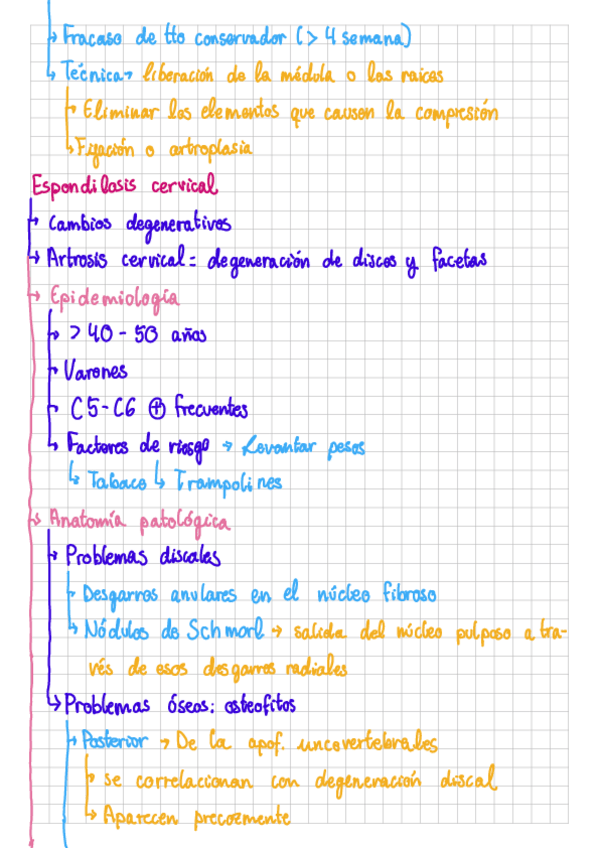 ↳ Fracaso de tto conservador (> 4 semana)
↳ Técnica → liberación de la médula o las raices
↳ Eliminar los elementos que causen la compresión
↳ Fijación o artroplasia
Espondilosis cervical
↳ Cambios degenerativos
↳ Artrosis cervical = degeneración de discos y facetas
↳ Epidemiología
↳ > 40 - 50 años
↳ Varones
↳ C5-C6 ⊕ frecuentes
↳ Factores de riesgo → Levantar pesos
↳ Tabaco ↳ Trampolines
↳ Anatomía patológica
↳ Problemas discales
↳ Desgarros anulares en el núcleo fibroso
↳ Nódulos de Schmorl → salida del núcleo pulposo a tra-
vés de esos desgarros radiales
↳ Problemas óseos: osteofitos
↳ Posterior → De la apof. uncovertebrales
↳ se correlacionan con degeneración discal
↳ Aparecen precozmente